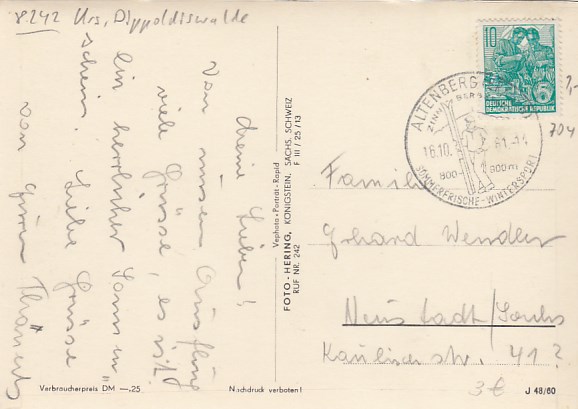 8242 Krs. Dippoldiswalde
Meine Lieben!
Von unserem Ausflug
viele Grüsse, es ist
ein herrlicher Sonnen
schein. Liebe Grüsse
von
10
DEUTSCHE
DEMOKRATISCHE REPUBLIK
ALTENBERG
16.10.
800- 900m
SOMMERFRISCHE-WINTERSPORT
704
Familie
Gerhard Wendler
Neustadt/Sachs
str. 41?
Vephota · Porträt · Rapid
FOTO-HERING, KÖNIGSTEIN, SÄCHS. SCHWEIZ
RUF NR. 242 F III / 25 / 13
Verbraucherpreis DM —.25
Nachdruck verboten!
3 €
J 48/60